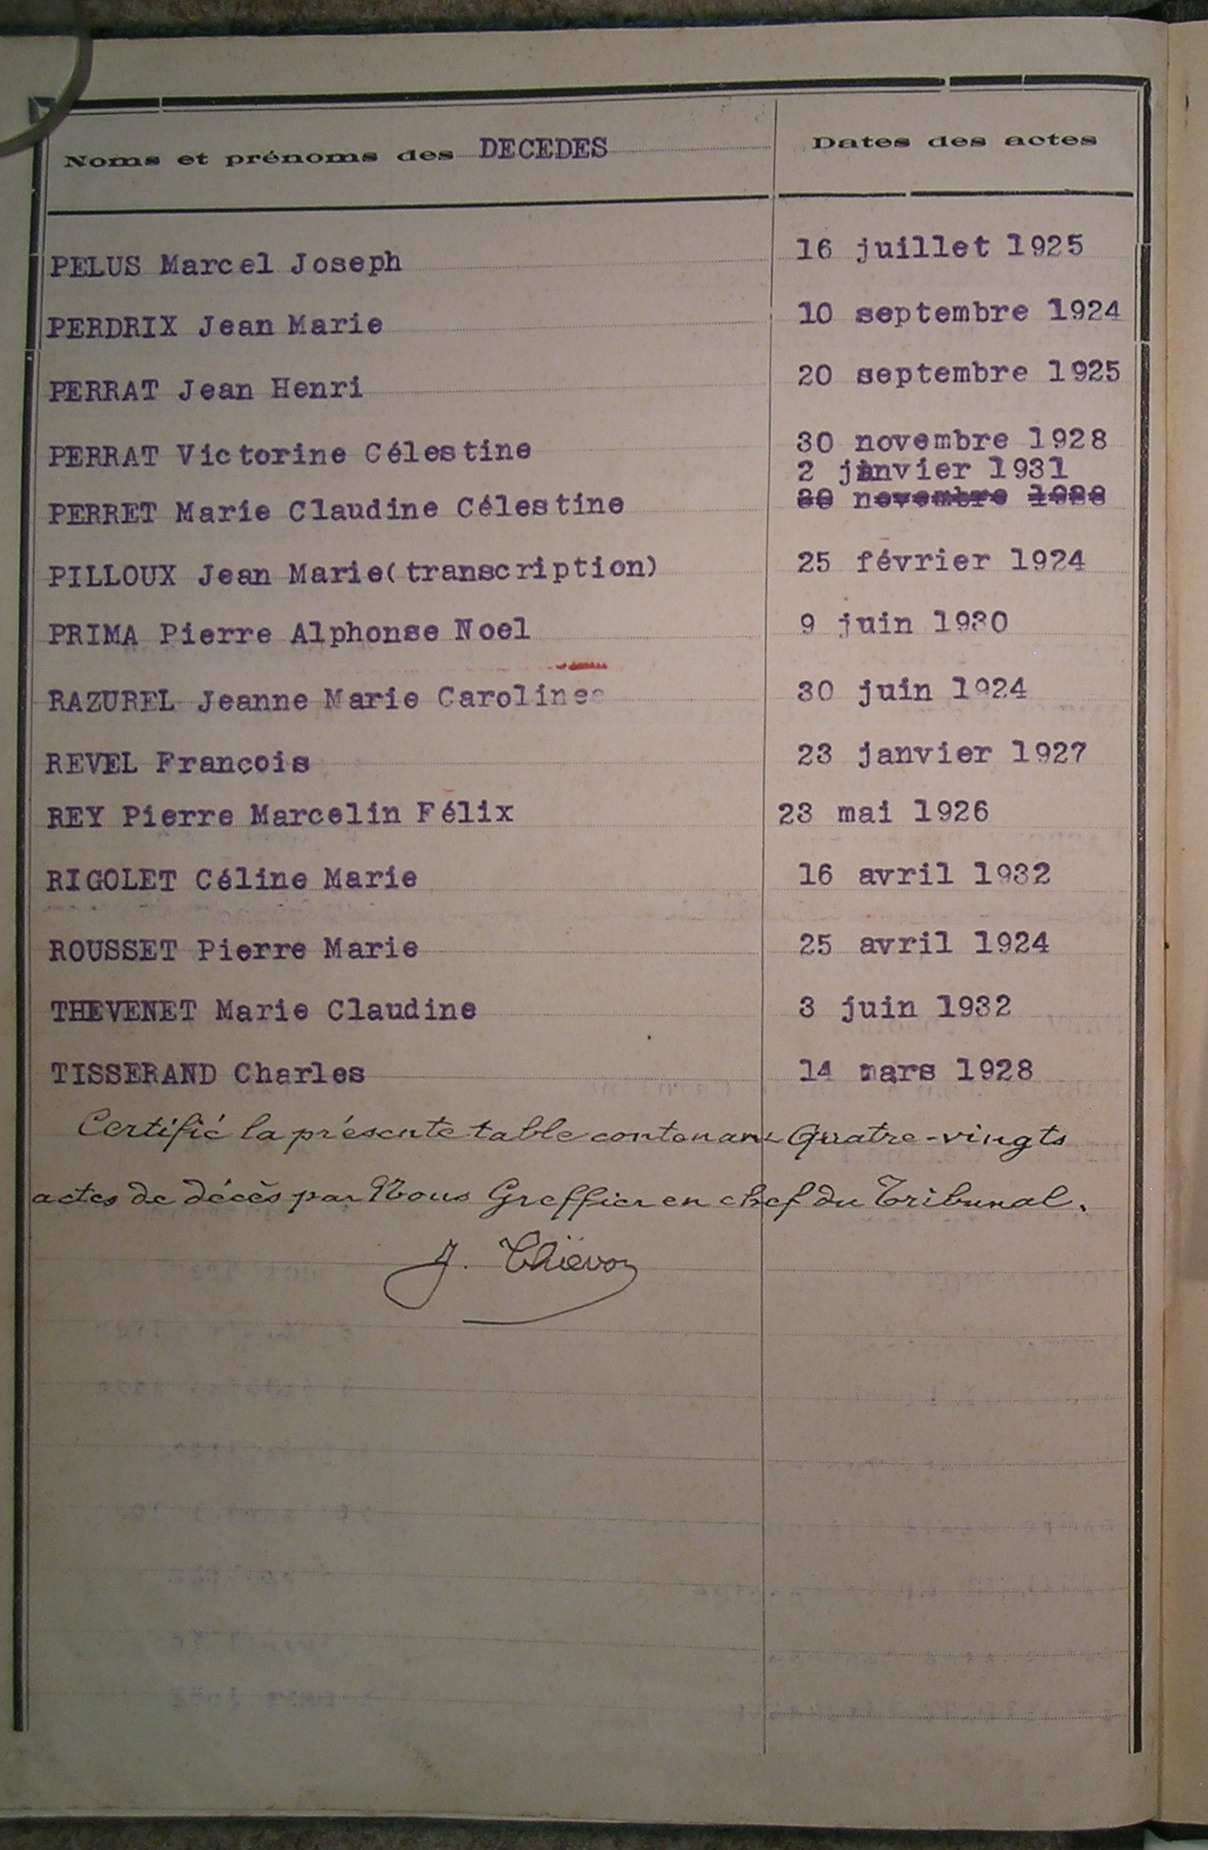 Noms et prénoms des DECEDES Dates des actes
PELUS Marcel Joseph 16 juillet 1925
PERDRIX Jean Marie 10 septembre 1924
PERRAT Jean Henri 20 septembre 1925
PERRAT Victorine Célestine 30 novembre 1928
2 janvier 1931
PERRET Marie Claudine Célestine 30 novembre 1928
PILLOUX Jean Marie(transcription) 25 février 1924
PRIMA Pierre Alphonse Noel 9 juin 1930
RAZUREL Jeanne Marie Caroline 30 juin 1924
REVEL François 23 janvier 1927
REY Pierre Marcelin Félix 23 mai 1926
RIGOLET Céline Marie 16 avril 1932
ROUSSET Pierre Marie 25 avril 1924
THEVENET Marie Claudine 3 juin 1932
TISSERAND Charles 14 mars 1928
Certifié la présente table contenant Quatre-vingts
actes de décès par Nous Greffier en chef du Tribunal.
J. Thiévon